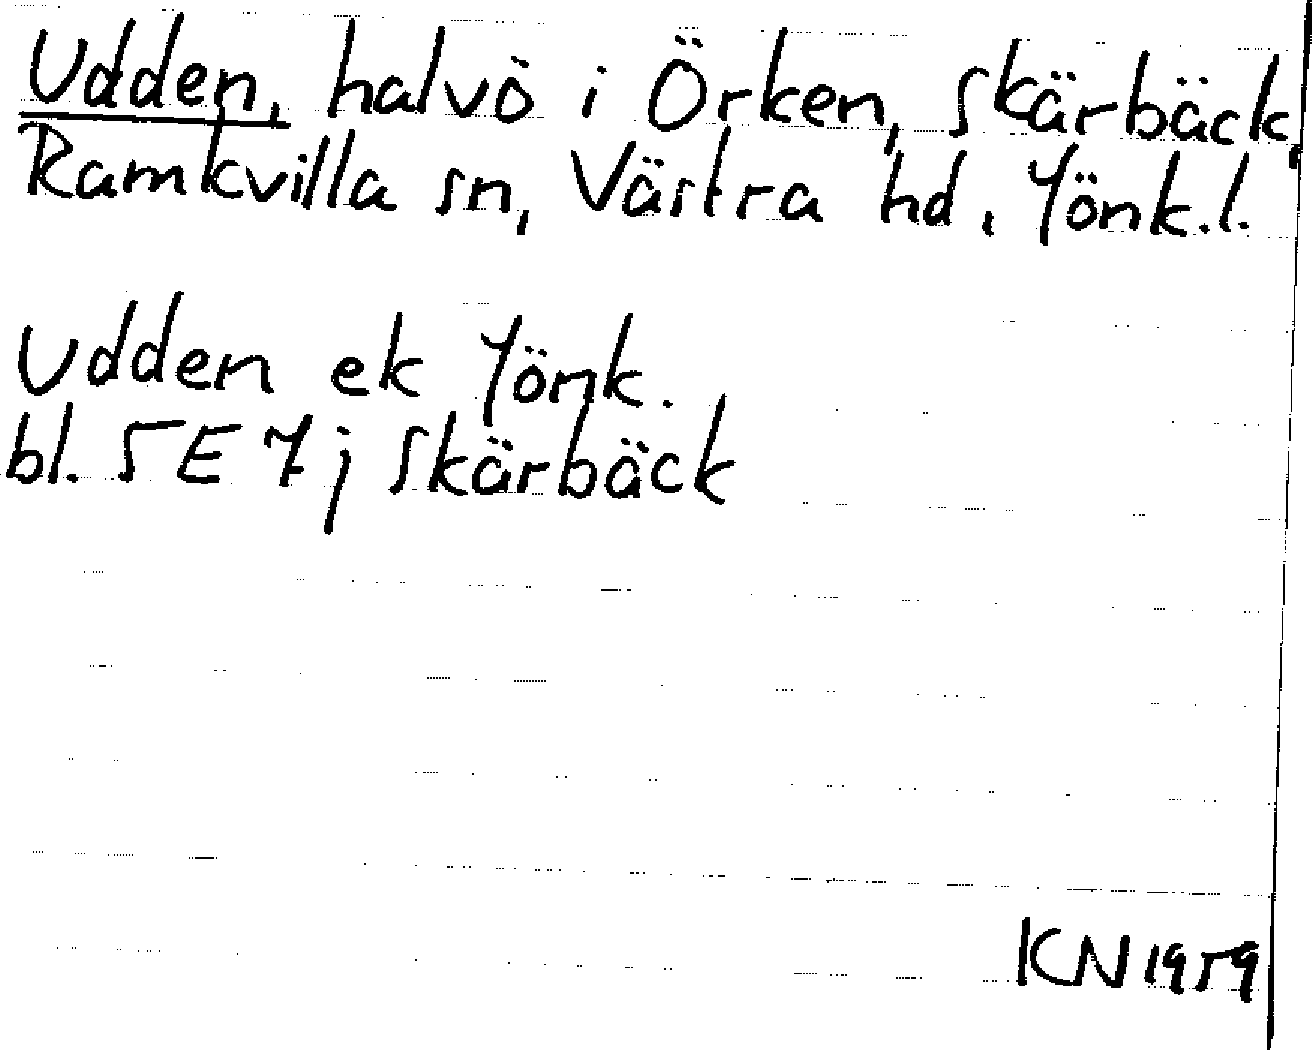 Udden, halvö i Örken, Skärbäck,
Ramkvilla sn, Västra hd, Jönk.l.
Udden ek Jönk.
bl. 5E7j Skärbäck
KN 1959